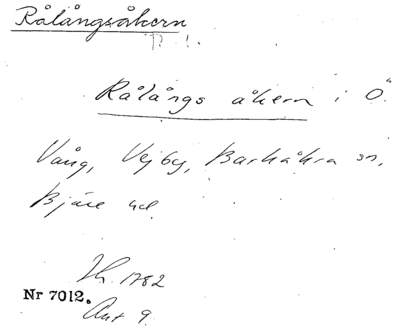 Rålångsåkern
Rålångs åkern i Ö.
Vång, Vejby, Barkåkra sn,
Bjäre hd.
1782
Nr 7012.
Akt 9.